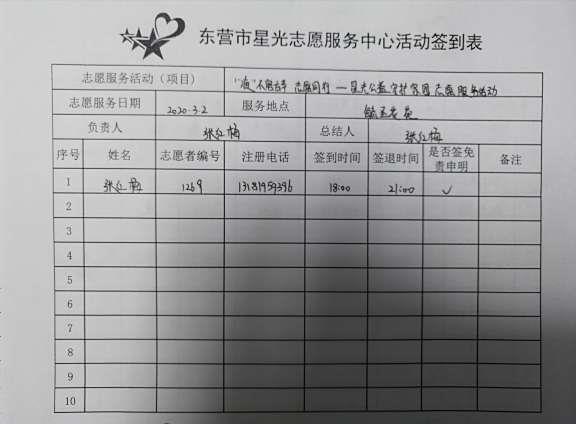 东营市星光志愿服务中心活动签到表
志愿服务活动（项目） "疫"不容辞 志愿同行 — 星光公益 守护家园 志愿服务活动
志愿服务日期 2020.3.2 服务地点
负责人 张红梅 总结人 张红梅
序号 姓名 志愿者编号 注册电话 签到时间 签退时间 是否签免责申明 备注
1 张红梅 1269 13181959396 18:00 21:00 ✓
2
3
4
5
6
7
8
9
10